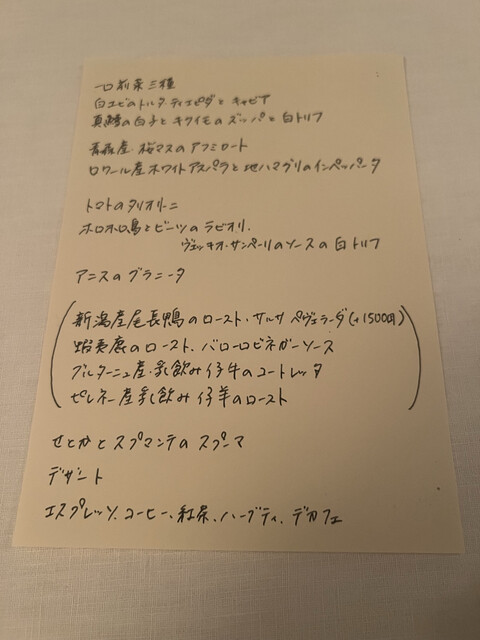 一口前菜三種
白エビのトルタ・ディ・チェピダと キャビア
真鱈の白子と キクイモの ズッパと 白トリフ
青森産 桜マスのアフミカート
ロワール産ホワイトアスパラと 地ハマグリのインペッパータ
トマトのタリオリーニ
ホロホロ鳥とビーツのラビオリ.
ヴェッキオ・サンペーリのソースの白トリフ
アニスのグラニータ
新潟産尾長鴨のロースト・サルサ ペヴェラーダ(+1500円)
蝦夷鹿のロースト. バローロビネガーソース
ブルターニュ産・乳飲み仔牛のコートレッタ
ピレネー産乳飲み仔羊のロースト
せとかとスプマンテの スプーマ
デザート
エスプレッソ、コーヒー、紅茶、ハーブティ、デカフェ